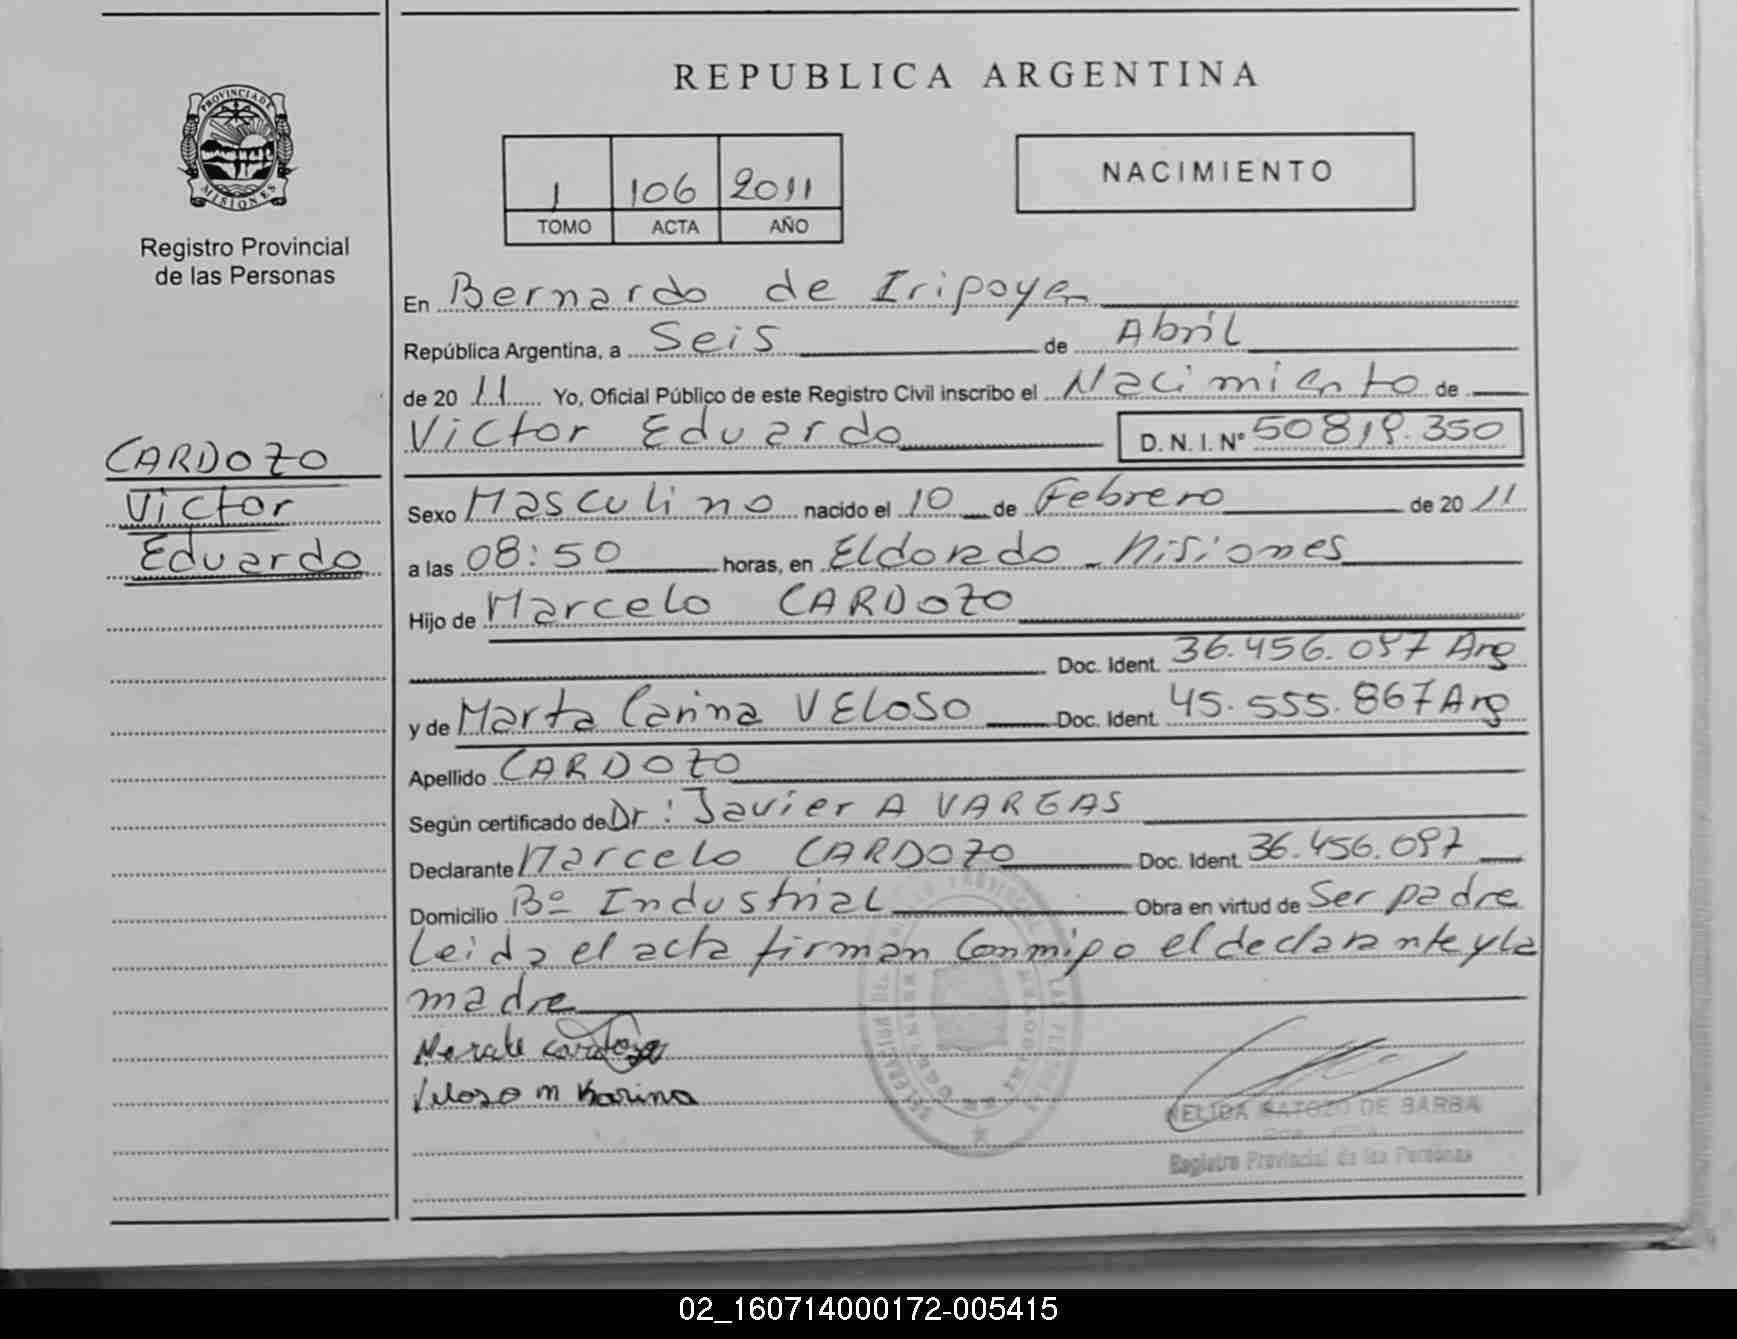 PROVINCIA DE
MISIONES
Registro Provincial
de las Personas
CARDOZO
Victor
Eduardo
REPUBLICA ARGENTINA
1 106 2011
TOMO ACTA AÑO
NACIMIENTO
En Bernardo de Iripoyen
República Argentina, a Seis de Abril
de 20 11 Yo, Oficial Público de este Registro Civil inscribo el Nacimiento de
Victor Eduardo D. N. I. Nº 50819.350
Sexo Masculino nacido el 10 de Febrero de 20 11
a las 08:50 horas, en Eldorado - Misiones
Hijo de Marcelo CARDOZO
Doc. Ident. 36.456.097 Arg
y de Marta Carina VELOSO Doc. Ident. 45.555.867 Arg
Apellido CARDOZO
Según certificado de Dr: Javier A VARGAS
Declarante Marcelo CARDOZO Doc. Ident. 36.456.097
Domicilio Bº Industrial Obra en virtud de Ser padre
Leida el acta firman Conmipo el declarante y la
madre
Veloso m Karina
NELIDA DE BARBA
Registro Provincial de las Personas
02_160714000172-005415